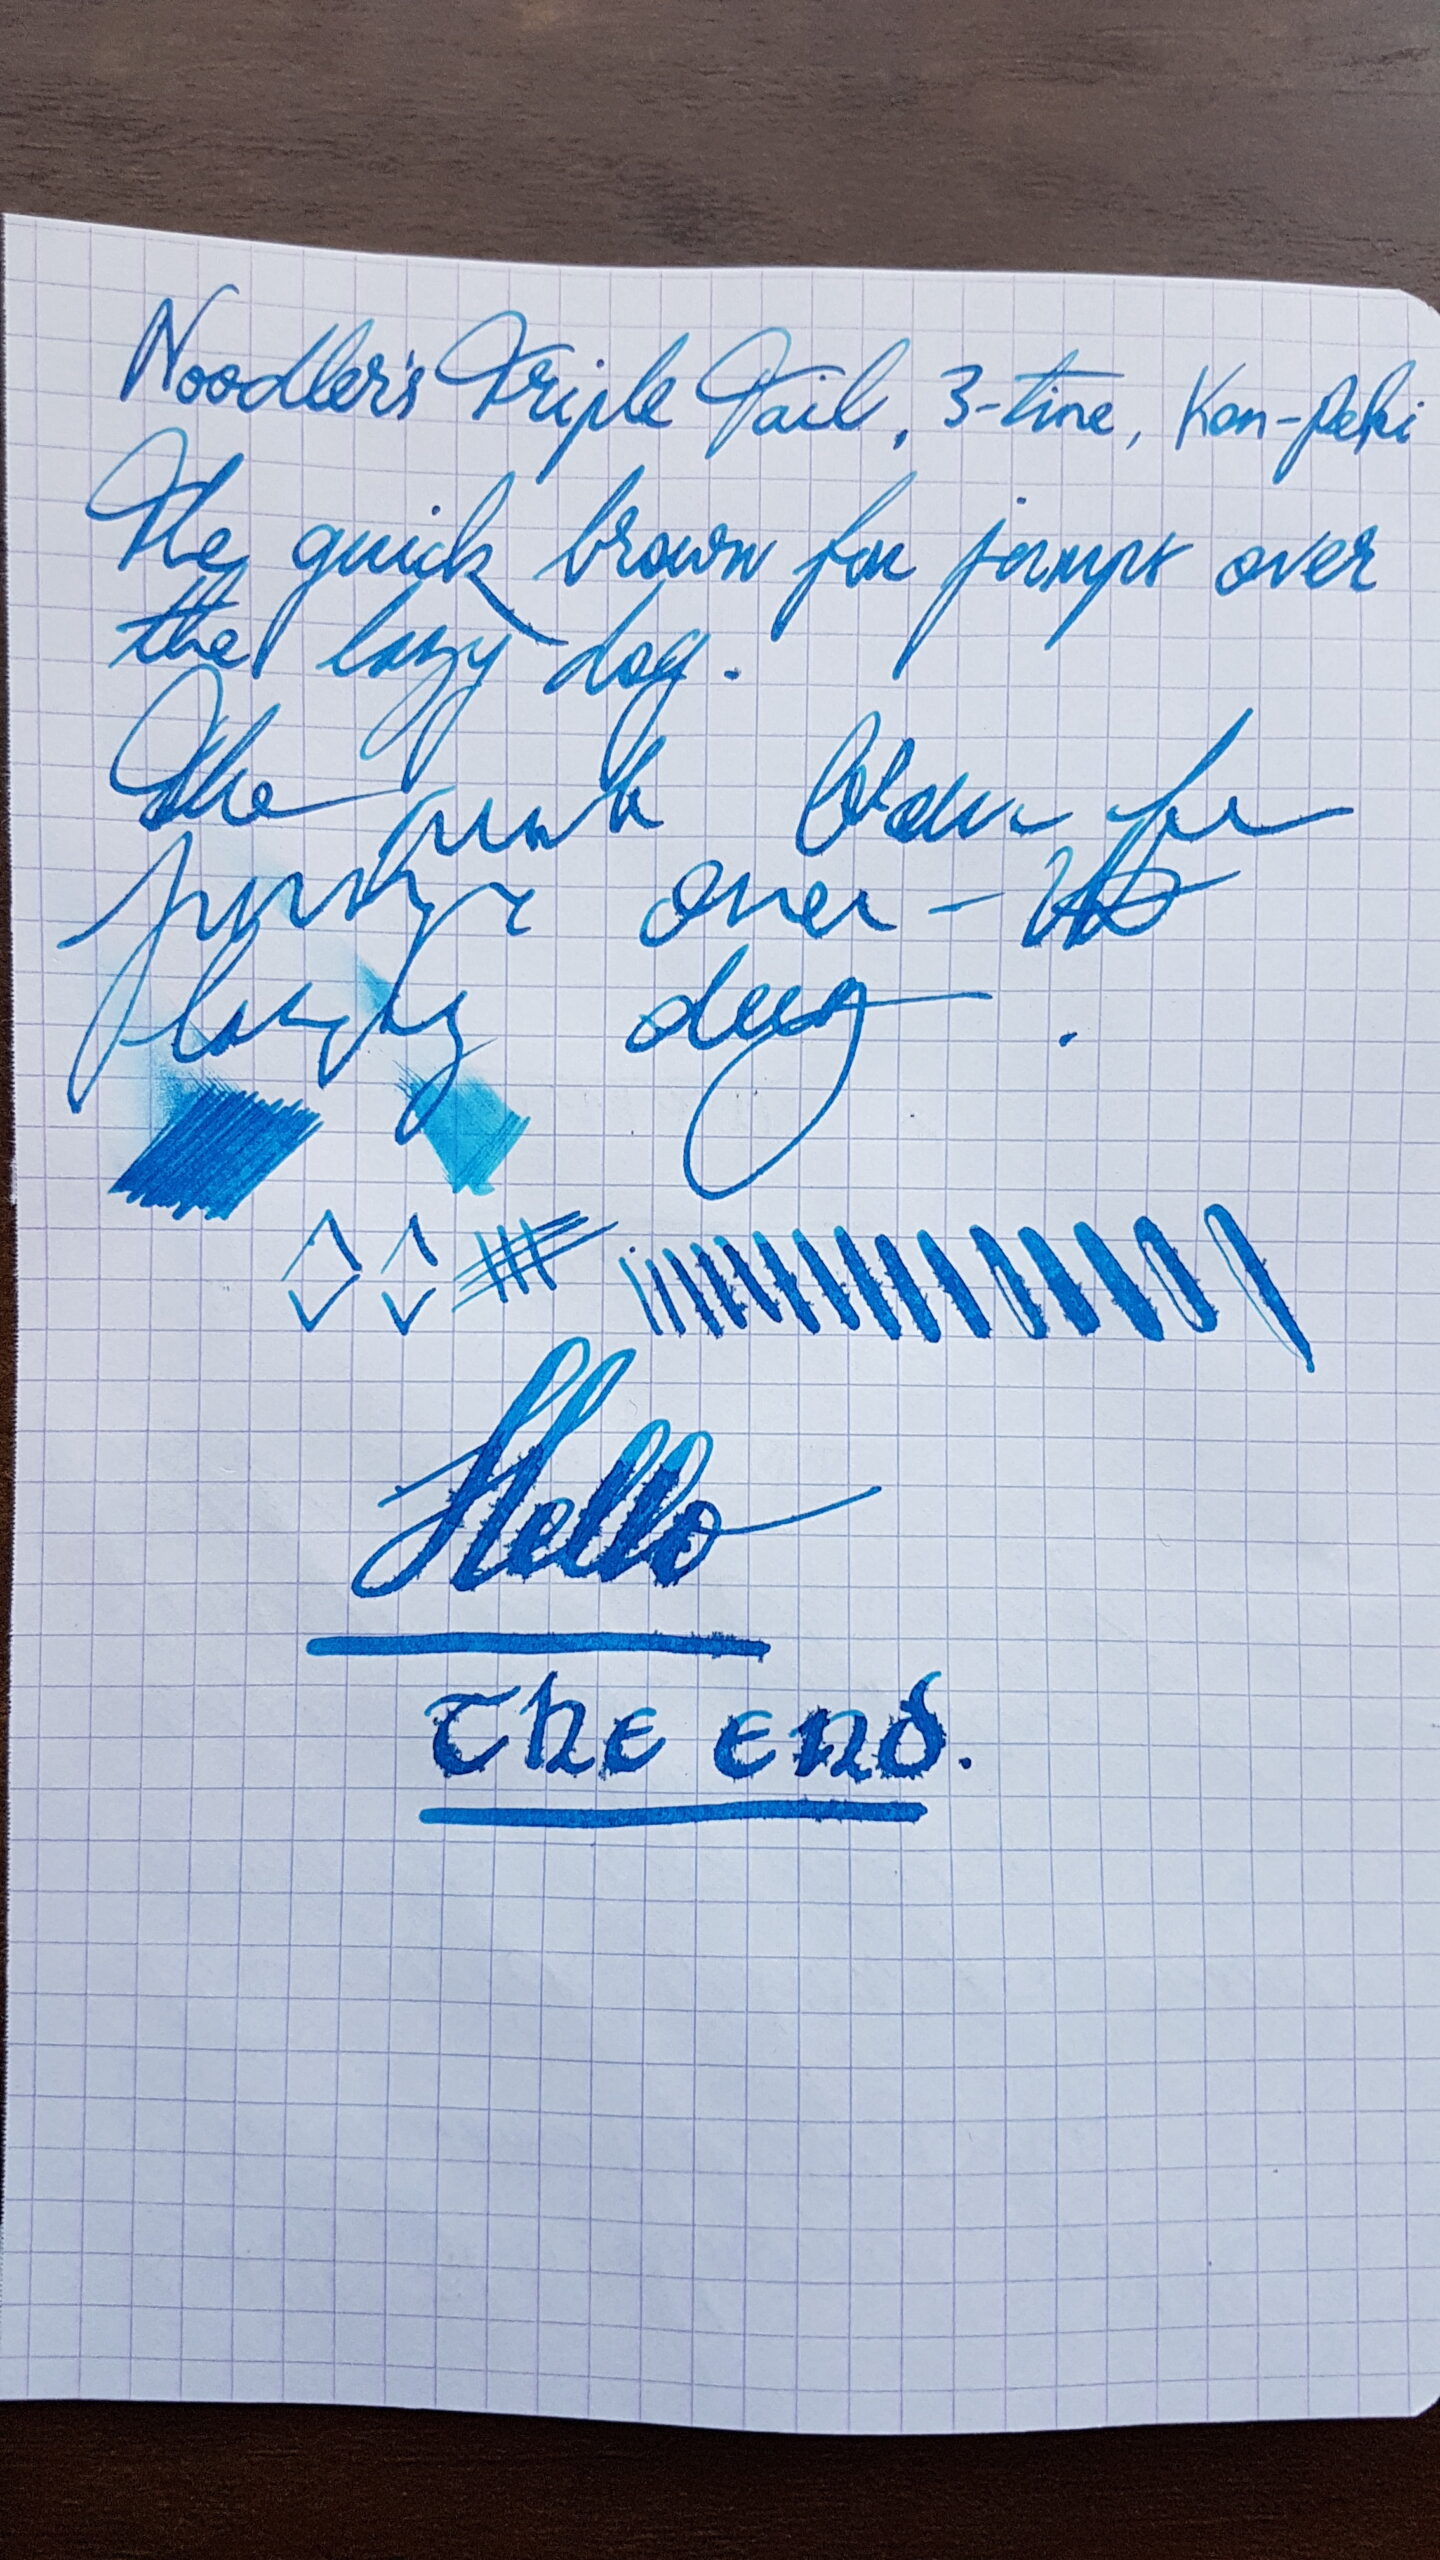 Noodler's Triple Tail, 3-tine, Kon-Peki
The quick brown fox jumps over
the lazy dog.
The quick brown fox
jumps over the
lazy dog.
Hello
The end.